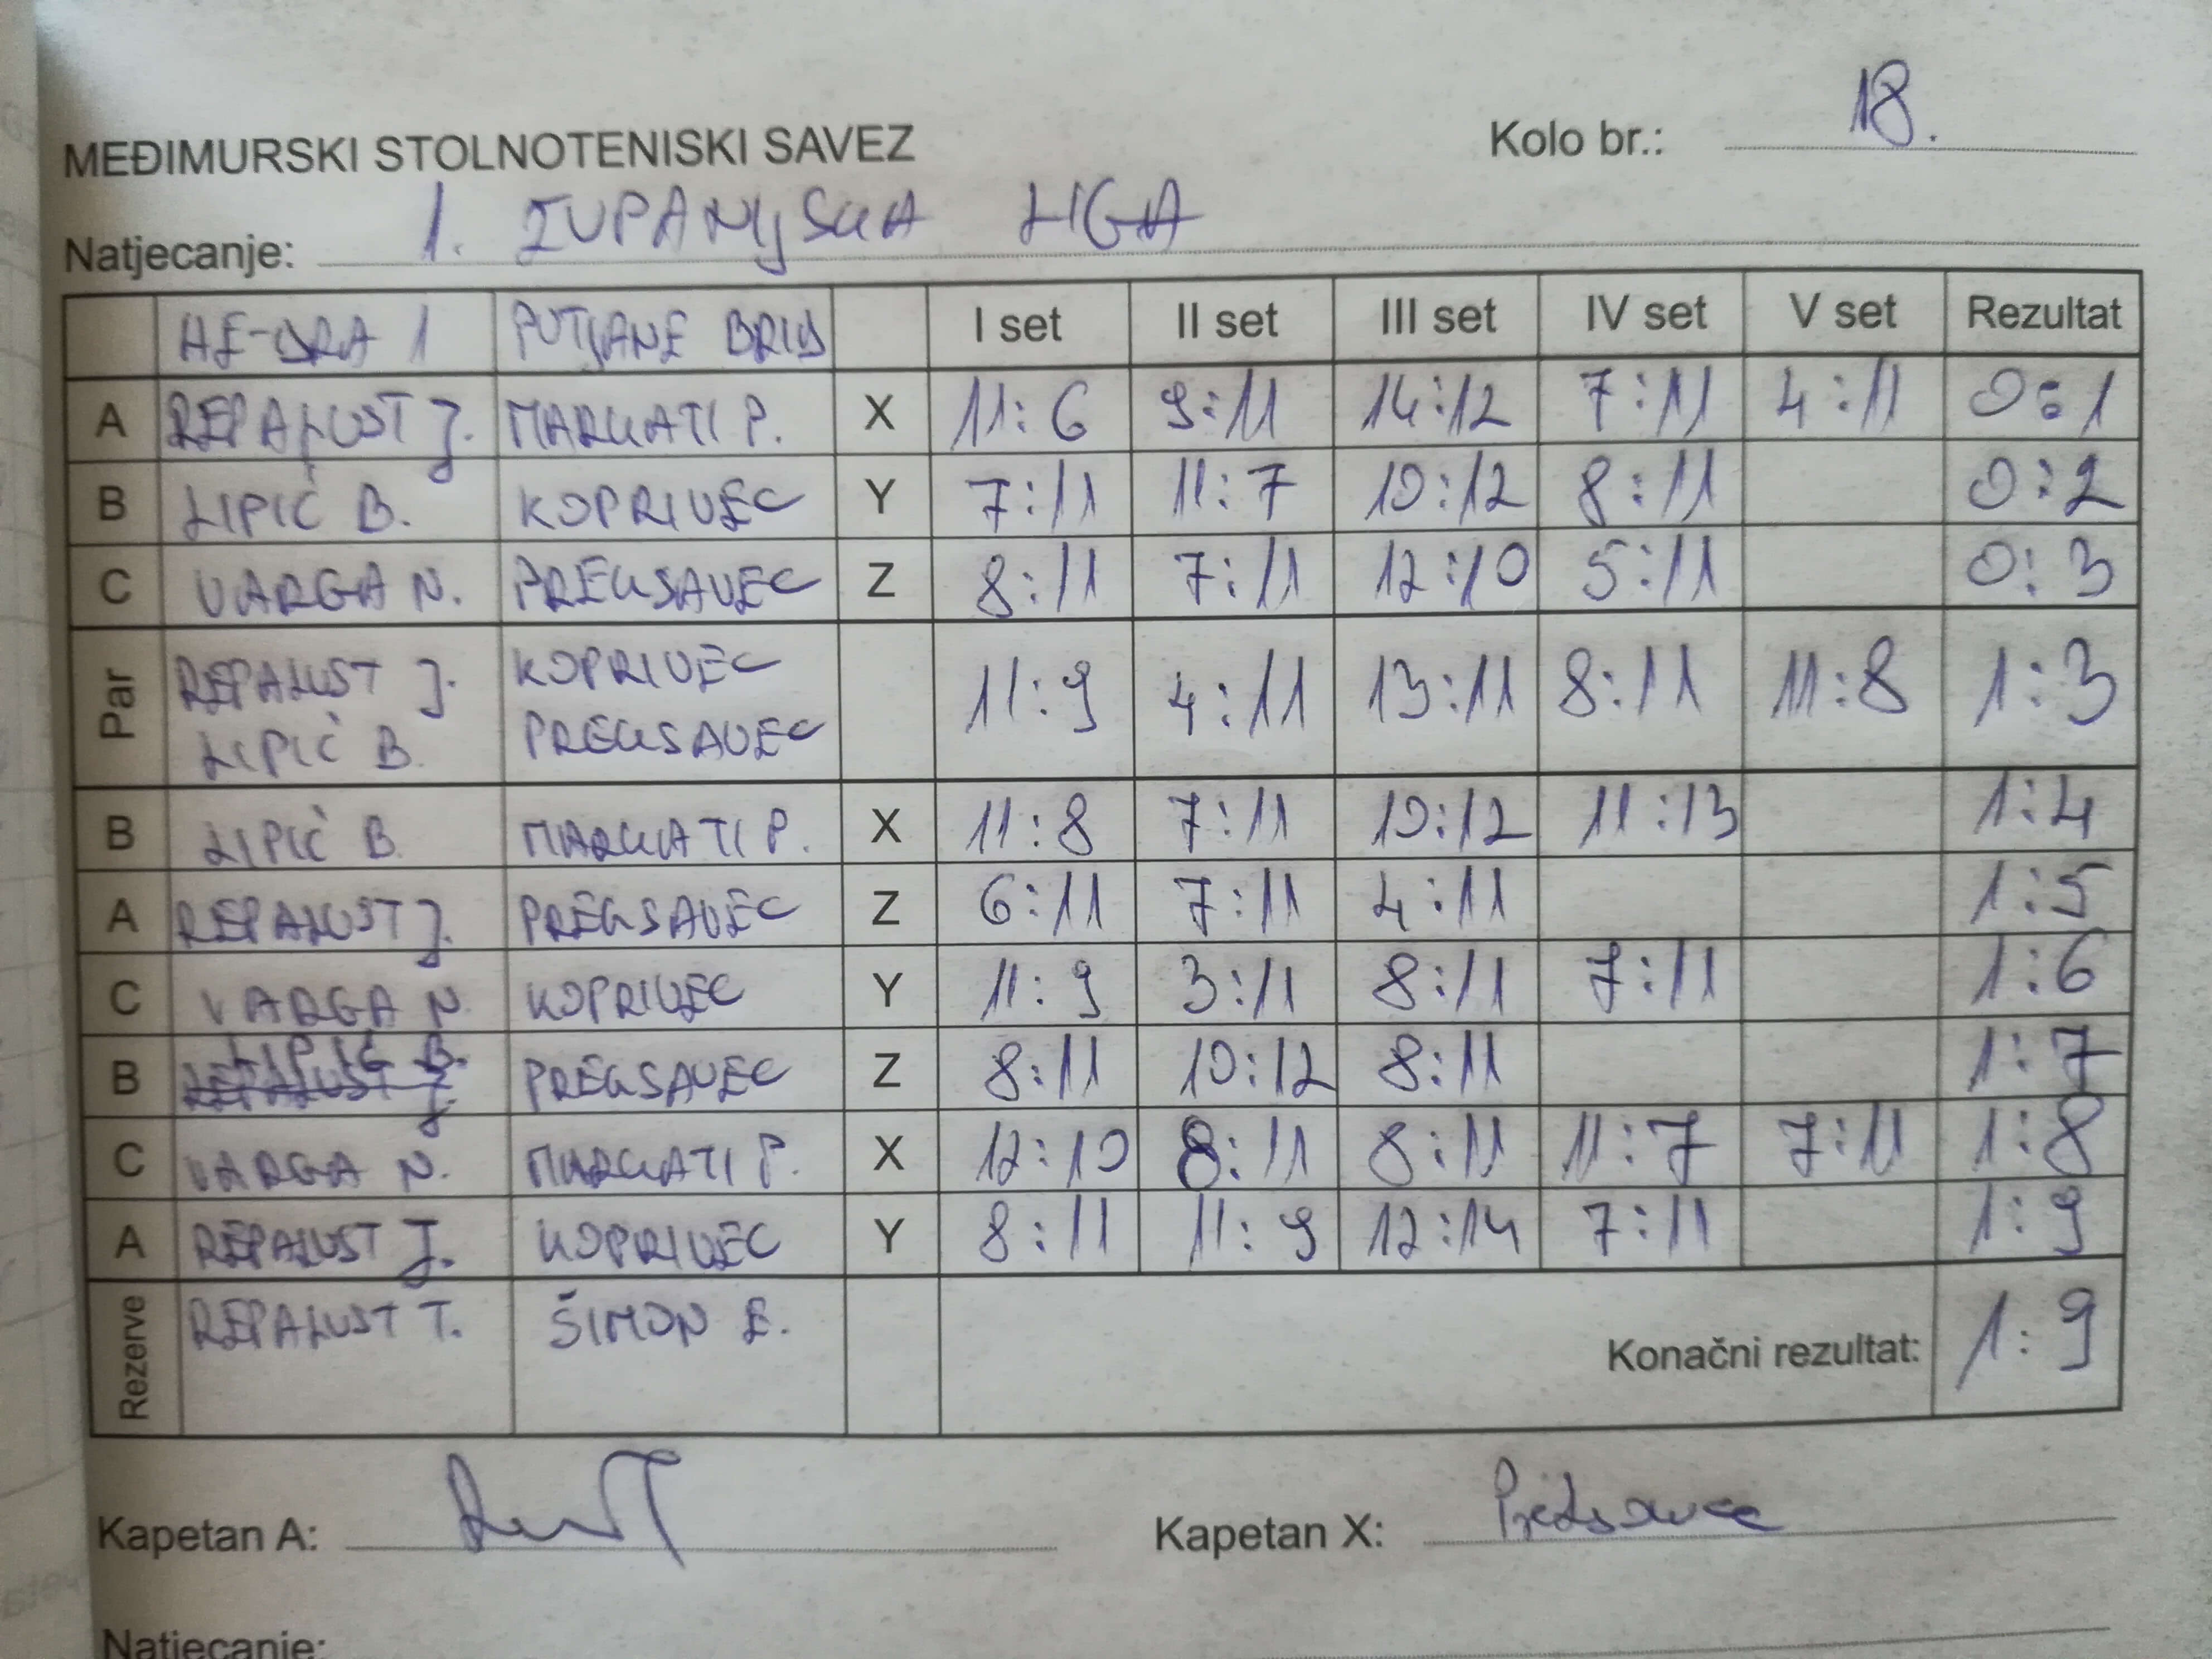 MEĐIMURSKI STOLNOTENISKI SAVEZ
Kolo br.: 18.
Natjecanje: 1. ŽUPANIJSKA LIGA
HE-DRA 1 PUTJANE BRID I set II set III set IV set V set Rezultat
A REPALUST J. MARKATI P. X 11:6 9:11 14:12 7:11 4:11 0:1
B LIPIĆ B. KOPRIVEC Y 7:11 11:7 10:12 8:11 0:2
C VARGA N. PREKSAVEC Z 8:11 7:11 12:10 5:11 0:3
Par REPALUST J. KOPRIVEC 11:9 4:11 13:11 8:11 11:8 1:3
LIPIĆ B. PREKSAVEC
B LIPIĆ B. MARKATI P. X 11:8 7:11 10:12 11:13 1:4
A REPALUST J. PREKSAVEC Z 6:11 7:11 4:11 1:5
C VARGA N. KOPRIVEC Y 11:9 3:11 8:11 7:11 1:6
LIPIĆ B.
B REPALUST J. PREKSAVEC Z 8:11 10:12 8:11 1:7
C VARGA N. MARKATI P. X 12:10 8:11 8:11 11:7 7:11 1:8
A REPALUST J. KOPRIVEC Y 8:11 11:9 12:14 7:11 1:9
Rezerve REPALUST T. ŠIMON E. Konačni rezultat: 1:9
Kapetan A: Kapetan X: Preksavec
Natjecanje: